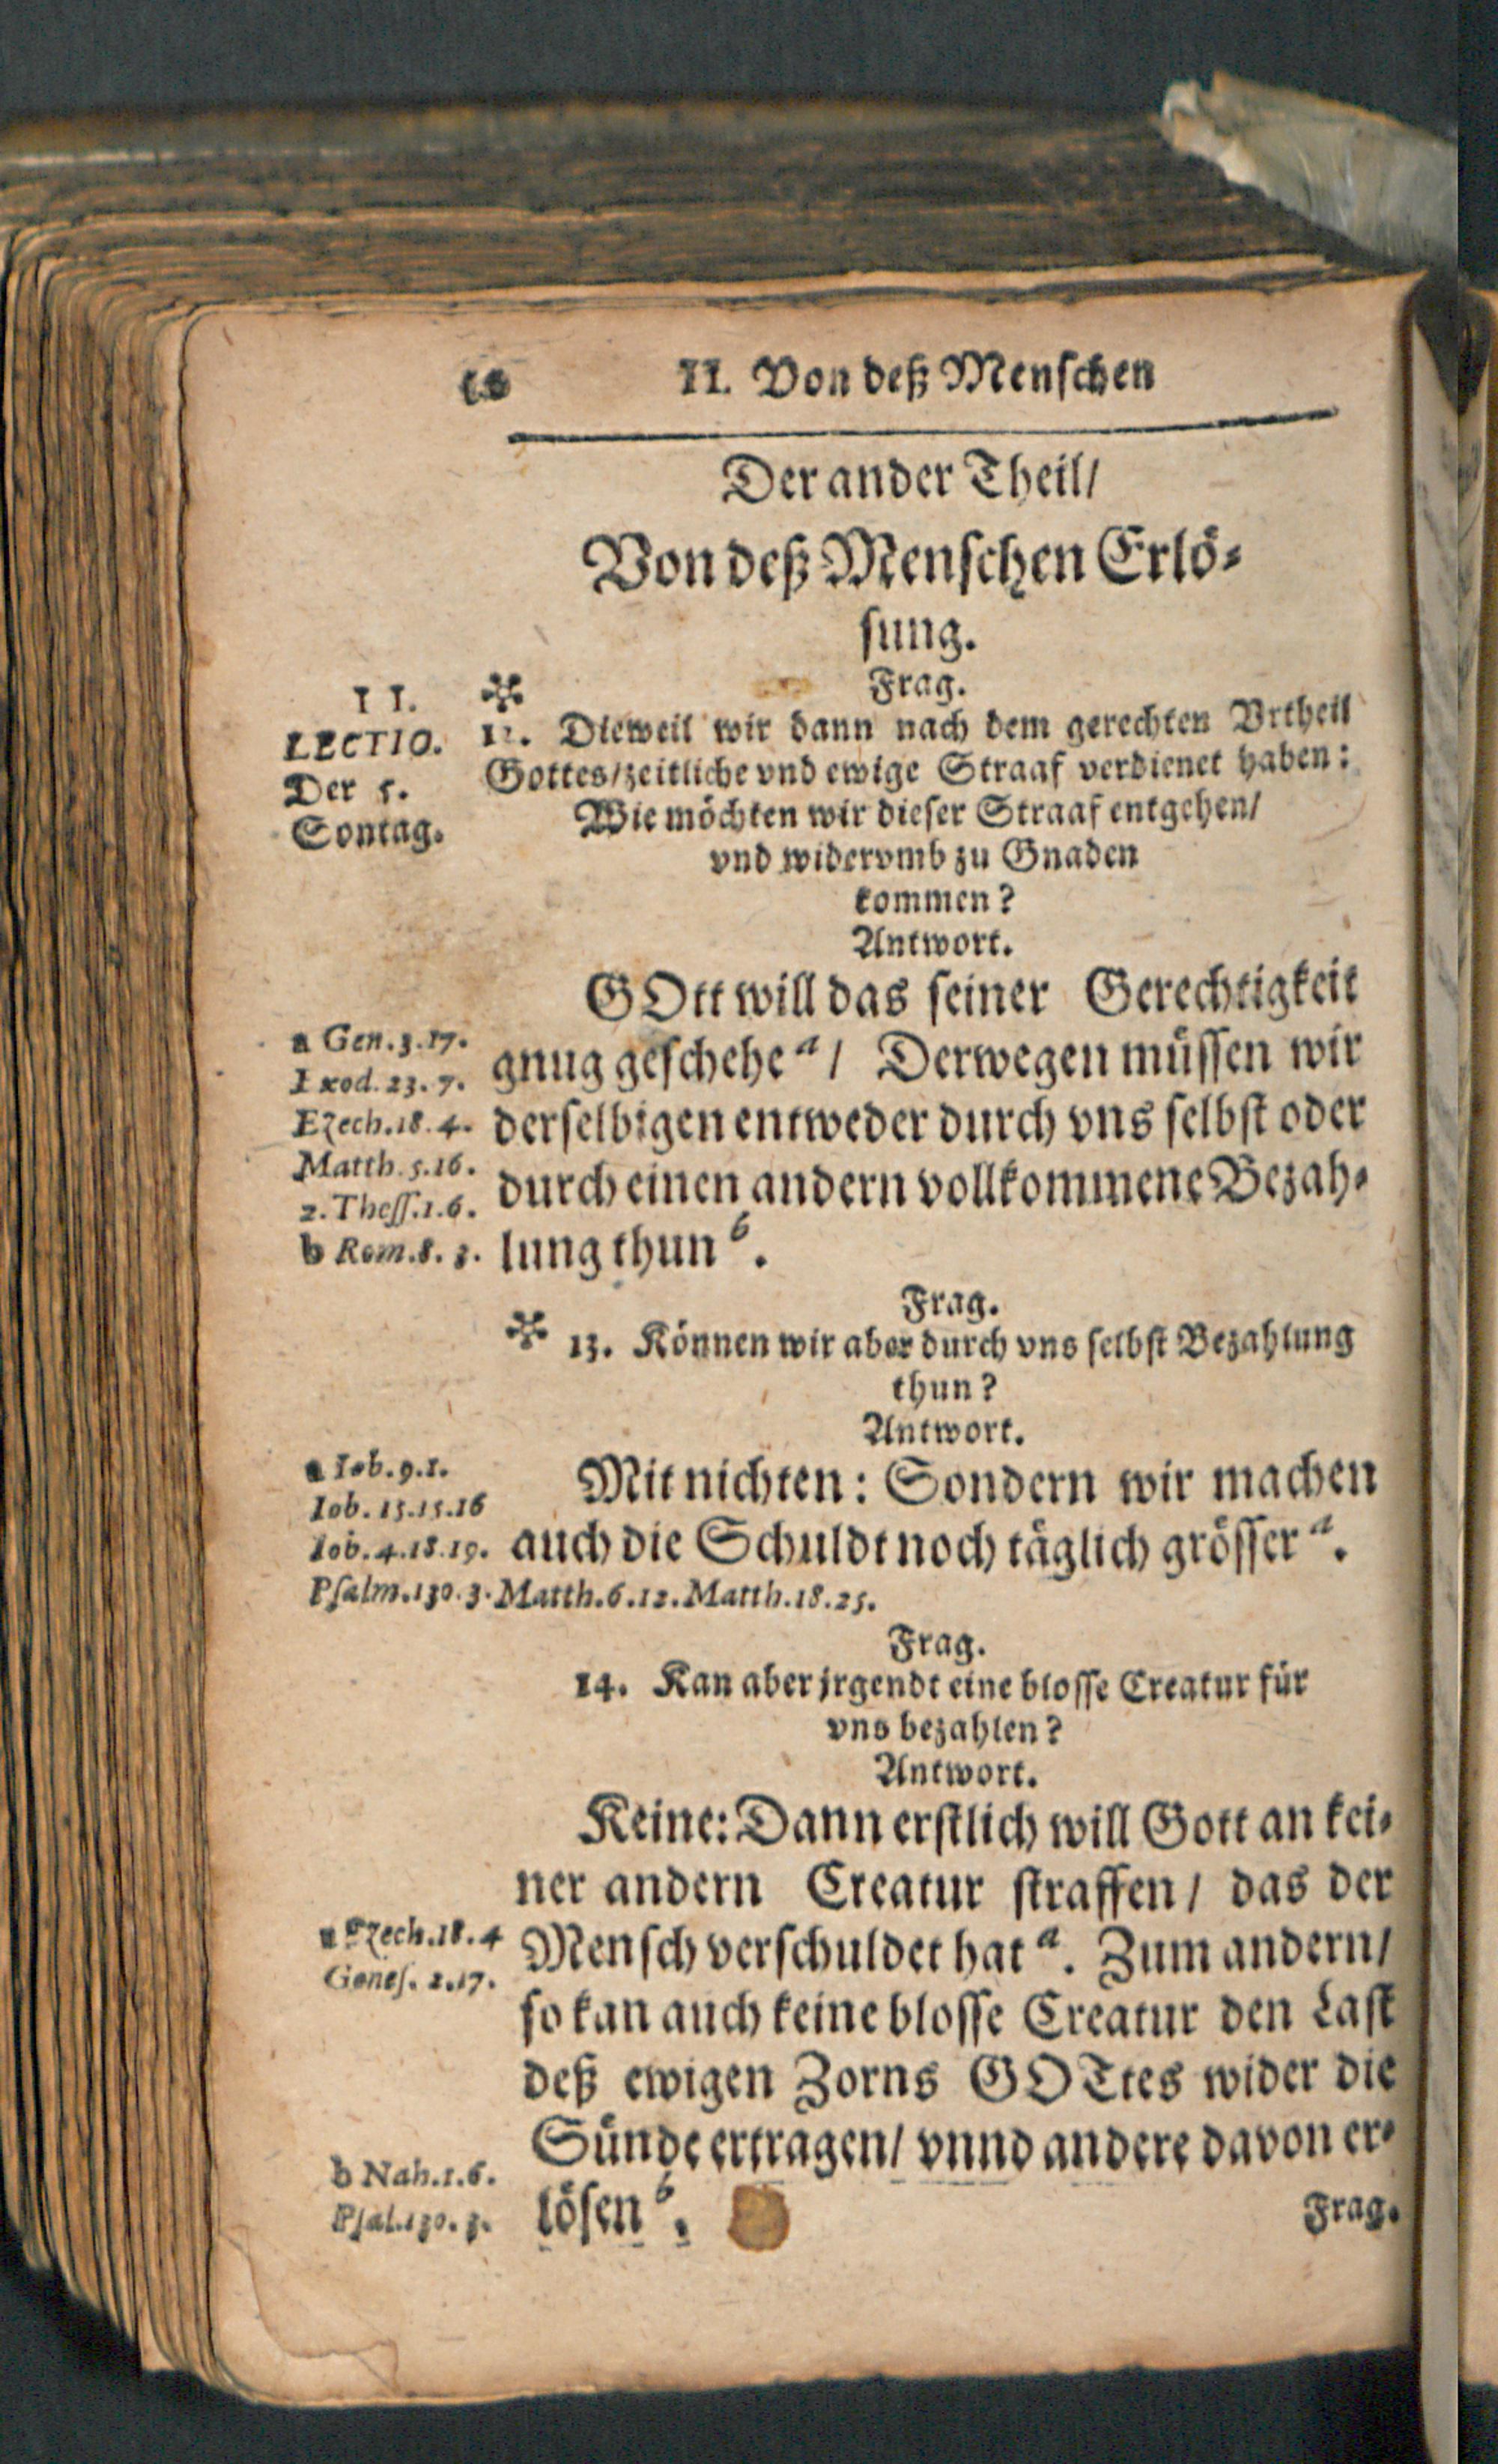 10 II. Von deß Menschen
Der ander Theil/
Von deß Menschen Erlö-
sung.
Frag.
II.
LECTIO.
Der 5.
Sontag.
12. Dieweil wir dann nach dem gerechten Vrtheil
Gottes/zeitliche vnd ewige Straaf verdienet haben:
Wie möchten wir dieser Straaf entgehen/
vnd widervmb zu Gnaden
kommen?
Antwort.
GOtt will das seiner Gerechtigkeit
gnug geschehe a / Derwegen müssen wir
derselbigen entweder durch vns selbst oder
durch einen andern vollkommene Bezah-
lung thun b.
a Gen.3.17.
Exod.23.7.
Ezech.18.4.
Matth.5.16.
2.Thess.1.6.
b Rom.8.3.
Frag.
13. Können wir aber durch vns selbst Bezahlung
thun?
Antwort.
Mit nichten: Sondern wir machen
auch die Schuldt noch täglich grösser a.
a Iob.9.1.
Iob.15.15.16
Iob.4.18.19.
Psalm.130.3.Matth.6.12.Matth.18.25.
Frag.
14. Kan aber jrgendt eine blosse Creatur für
vns bezahlen?
Antwort.
Keine: Dann erstlich will Gott an kei-
ner andern Creatur straffen/ das der
Mensch verschuldet hat a. Zum andern/
so kan auch keine blosse Creatur den Last
deß ewigen Zorns GOTtes wider die
Sünde ertragen/ vnnd andere davon er-
lösen b.
a Ezech.18.4
Genes.2.17.
b Nah.1.6.
Psal.130.3.
Frag.